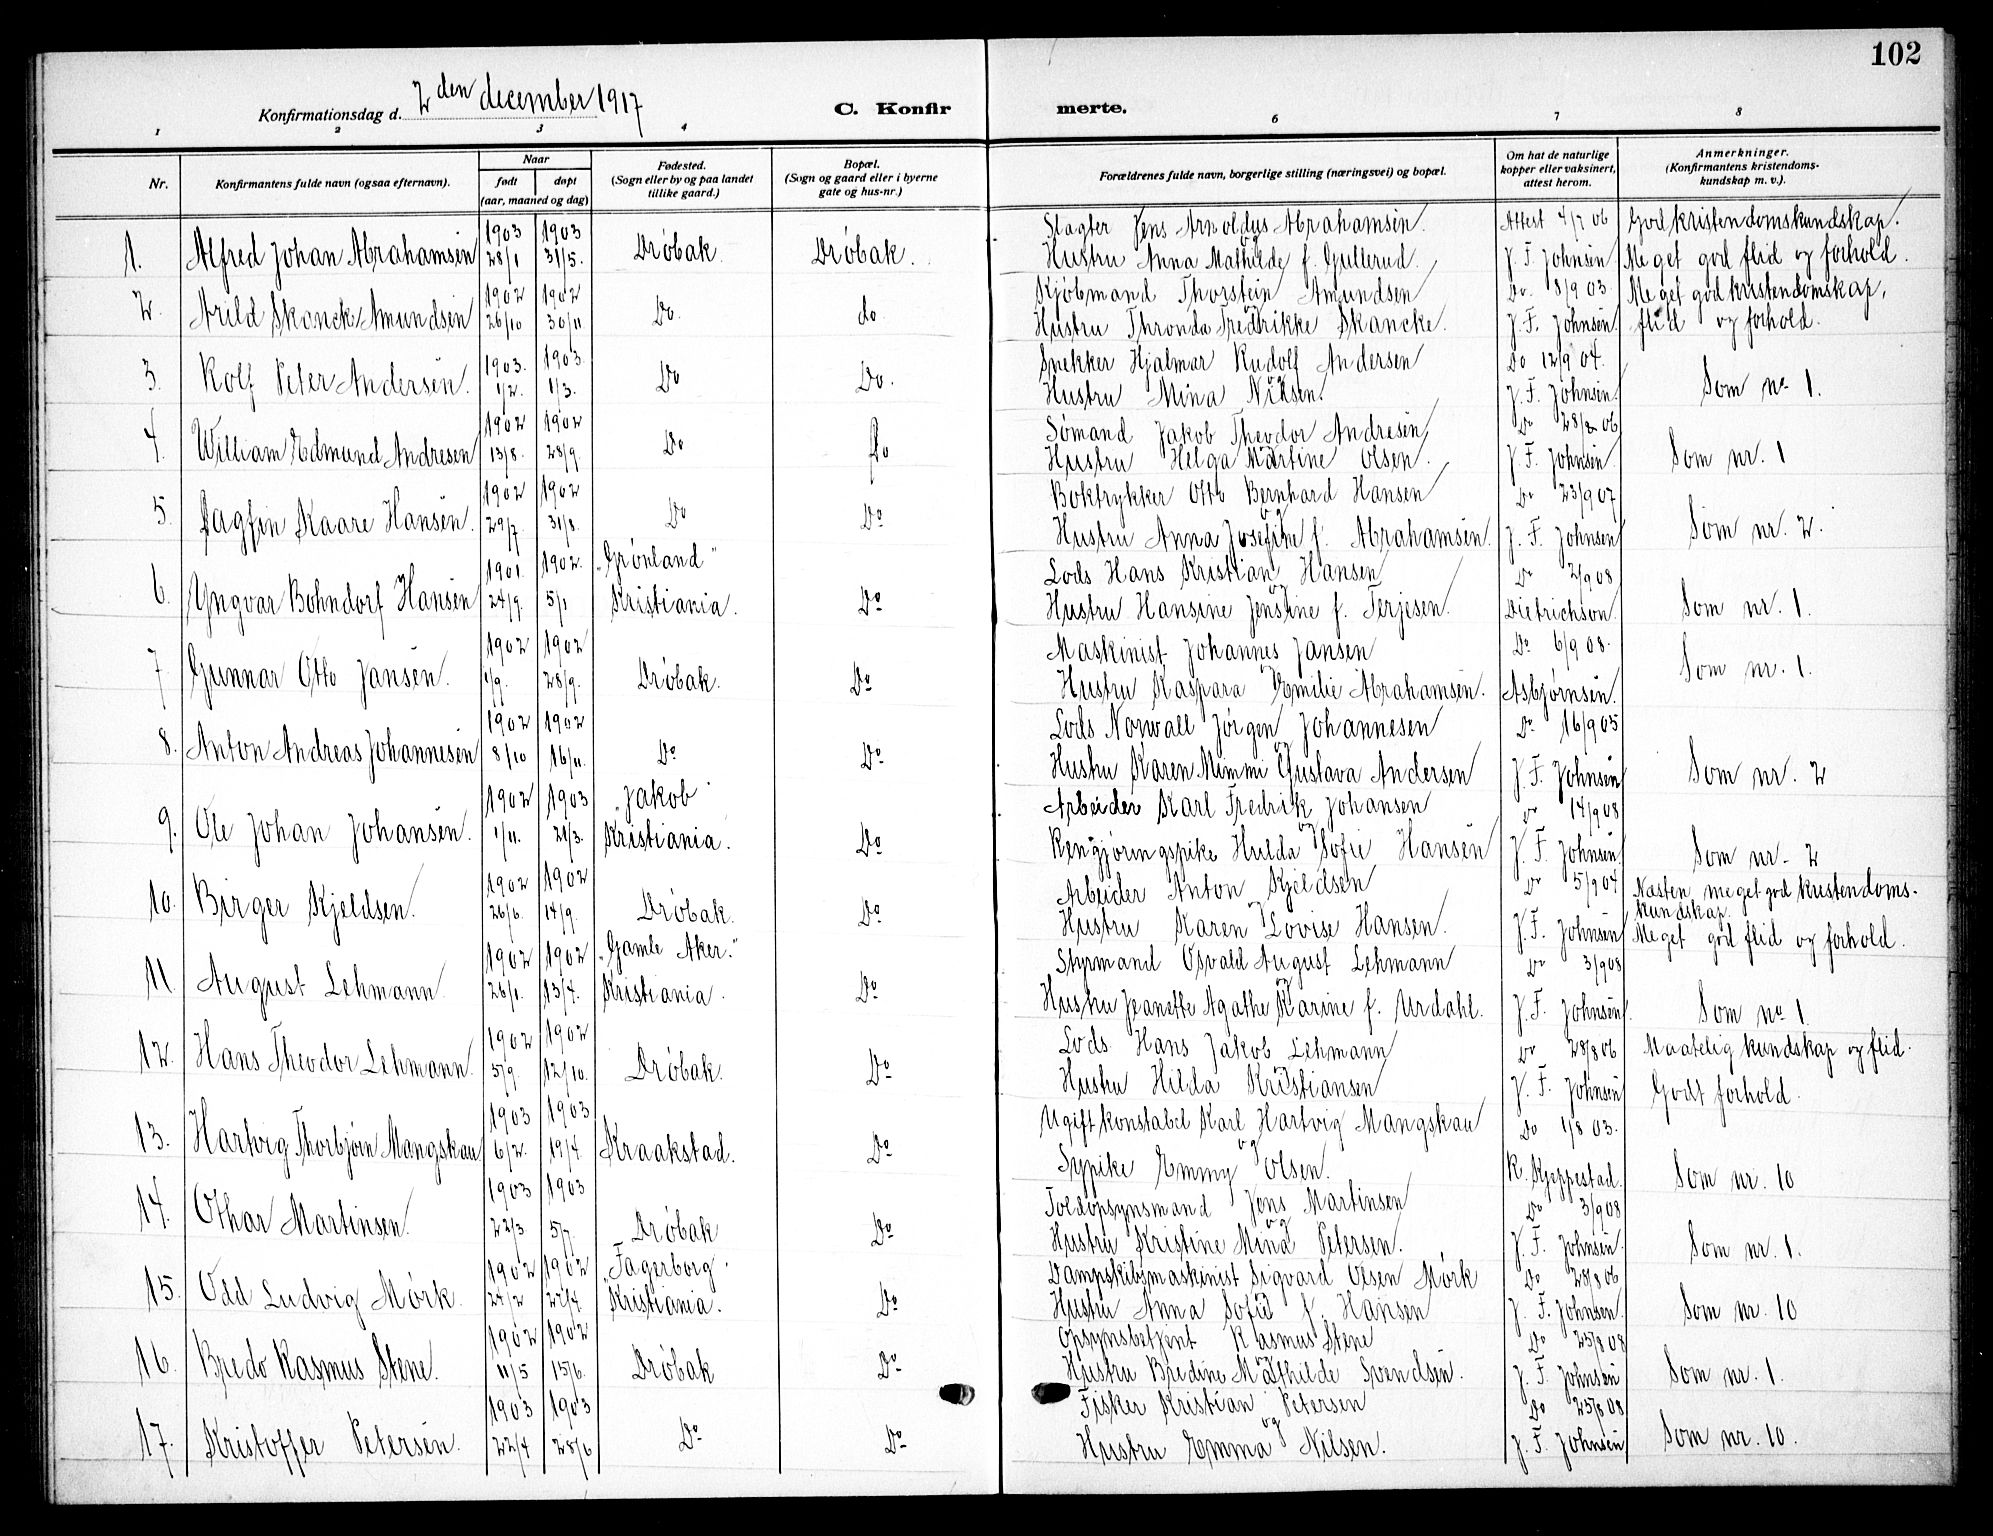 102
Konfirmationsdag d. 2den december 1917
C. Konfir merte.
1 2 3 4 6 7 8
Nr.
Konfirmantens fulde navn (ogsaa efternavn).
Naar
født
døpt
(aar, maaned og dag)
Fødested.
(Sogn eller by og paa landet
tillike gaard.)
Bopæl.
(Sogn og gaard eller i byerne
gate og hus-nr.)
Forældrenes fulde navn, borgerlige stilling (næringsvei) og bopæl.
Om hat de naturlige
kopper eller vaksinert,
attest herom.
Anmerkninger.
(Konfirmantens kristendoms-
kundskap m. v.).
1903 1903 Slagter Jens Arnoldus Abrahamsen. og Attest 4/7 06 God kristendomskundskap.
1. Alfred Johan Abrahamsen 28/1 31/5. Drøbak Drøbak. Hustru Anna Mathilde f. Gullerud. J. F. Johnsen Meget god flid og forhold.
1902 1902 Kjøbmand Thorstein Amundsen Do. 8/9 03 Meget god kristendomskap,
2. Arild Skancke Amundsen 26/10 30/11 Do. do. Hustru Thronda Fredrikke Skancke. J. F. Johnsen. flid og forhold.
1903. 1903. Snekker Hjalmar Rudolf Andersen og Do 12/9 04.
3. Rolf Peter Andersen. 1/2. 1/3. Do Do. Hustru Mina Nilsen. J. F. Johnsen. Som no 1.
1902 1902 Sømand Jakob Theodor Andresen og Do 28/8 06
4. William Edmund Andresen 13/8. 28/9. Do Do Hustru Helga Martine Olsen. J. F. Johnsen. Som nr. 1
1902 1902 Boktrykker Otto Bernhard Hansen og Do 23/9 07
5. Dagfin Kaare Hansen. 29/7. 31/8. Do Do Hustru Anna Josefine f. Abrahamsen. J. F. Johnsen Som nr. 2.
1901. 1902. "Grønland" Lods Hans Kristian Hansen og Do 2/9 08
6. Yngvar Bohndorf Hansen 24/9. 5/1 Kristiania. Do Hustru Hansine Jensine f. Terjesen. Dietrichson. Som nr. 1.
1902 1902 Maskinist Johannes Jansen og Do 6/9 08.
7. Gunnar Otto Jansen. 1/9. 28/9. Drøbak. Do Hustru Kaspara Emilie Abrahamsen. Asbjørnsen. Som nr. 1.
1902 1902 Lods Norwall Jørgen Johannesen og Do 16/9 05
8. Anton Andreas Johannesen 8/10 16/11. Do Do Hustru Karen Mimmi Gustava Andersen J. F. Johnsen Som nr. 2
1902 1903 "Jakob" Arbeider Karl Fredrik Johansen og Do 14/9 08
9. Ole Johan Johansen. 1/11. 21/3. Kristiania. Do Rengjøringspike Hulda Sofie Hansen J. F. Johnsen Som nr. 2
1902 1902 Arbeider Anton Kjeldsen og Do 5/9 04 Næsten meget god kristendoms-
kundskap.
10. Birger Kjeldsen. 26/6. 14/9. Drøbak. Do Hustru Karen Lovise Hansen. J. F. Johnsen Meget god flid og forhold.
1902 1902 "Gamle Aker." Styrmand Osvald August Lehmann og Do 3/9 08
11. August Lehmann 26/1. 13/4. Kristiania. Do Hustru Jeanette Agathe Karine f. Urdahl. J. F. Johnsen. Som no 1.
1902 1902 Lods Hans Jakob Lehmann og Do 28/8 06 Maatelig kundskap og flid.
12. Hans Theodor Lehmann. 5/9. 12/10. Drøbak. Do Hustru Hilda Kristiansen J. F. Johnsen Godt forhold.
1903 1903 Ugift konstabel Karl Hartvig Mangskau og Do 1/8 03.
13. Hartvig Thorbjørn Mangskau 6/2. 19/4. Kraakstad. Do Sypike Emmy Olsen. K. Kjeppestad. Som nr. 10
1903 1903 Toldopsynsmand Jens Martinsen og Do 3/9 08
14. Othar Martinsen. 22/3 5/7. Drøbak Do Hustru Kristine Mina Petersen. J. F. Johnsen. Som nr. 1.
1902 1902 "Fagerborg" Dampskibsmaskinist Sigvard Olsen Mørk Do 28/8 06
15. Odd Ludvig Mørk. 24/2 27/4. Kristiania. Do Hustru Anna Sofie f. Hansen J. F. Johnsen. Som nr. 10
1902 1902 Opsynsbetjent Rasmus Stene og Do 25/8 08
16. Bredo Rasmus Stene. 11/5 15/6. Drøbak Do Hustru Bredine Mathilde Svendsen. J. F. Johnsen Som nr. 1.
1903 1903 Fisker Kristian Petersen og Do 25/8 08
17. Kristoffer Petersen. 22/4 28/6 Do Do Hustru Emma Nilsen. J. F. Johnsen Som nr. 10.